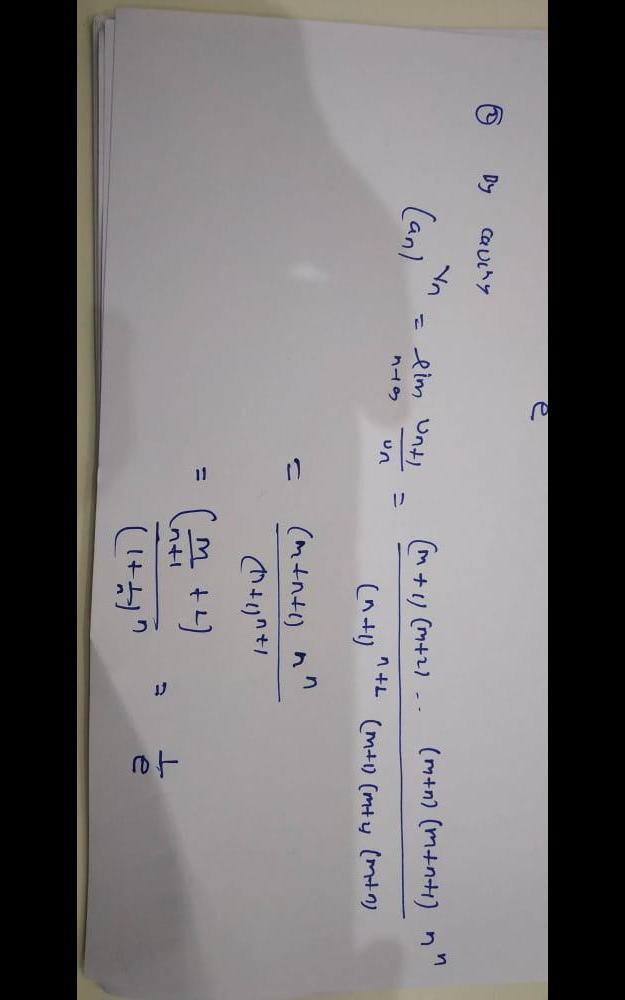 e
② By cauchy
(an)^1/n = lim n→∞ Un+1/Un = (m+1)(m+2).. (m+n)(m+n+1) n^n / (n+1)^n+1 (m+1)(m+2 (m+n)
= (m+n+1) n^n / (n+1)^n+1
= (m/n+1 + 1) / (1+1/n)^n = 1/e